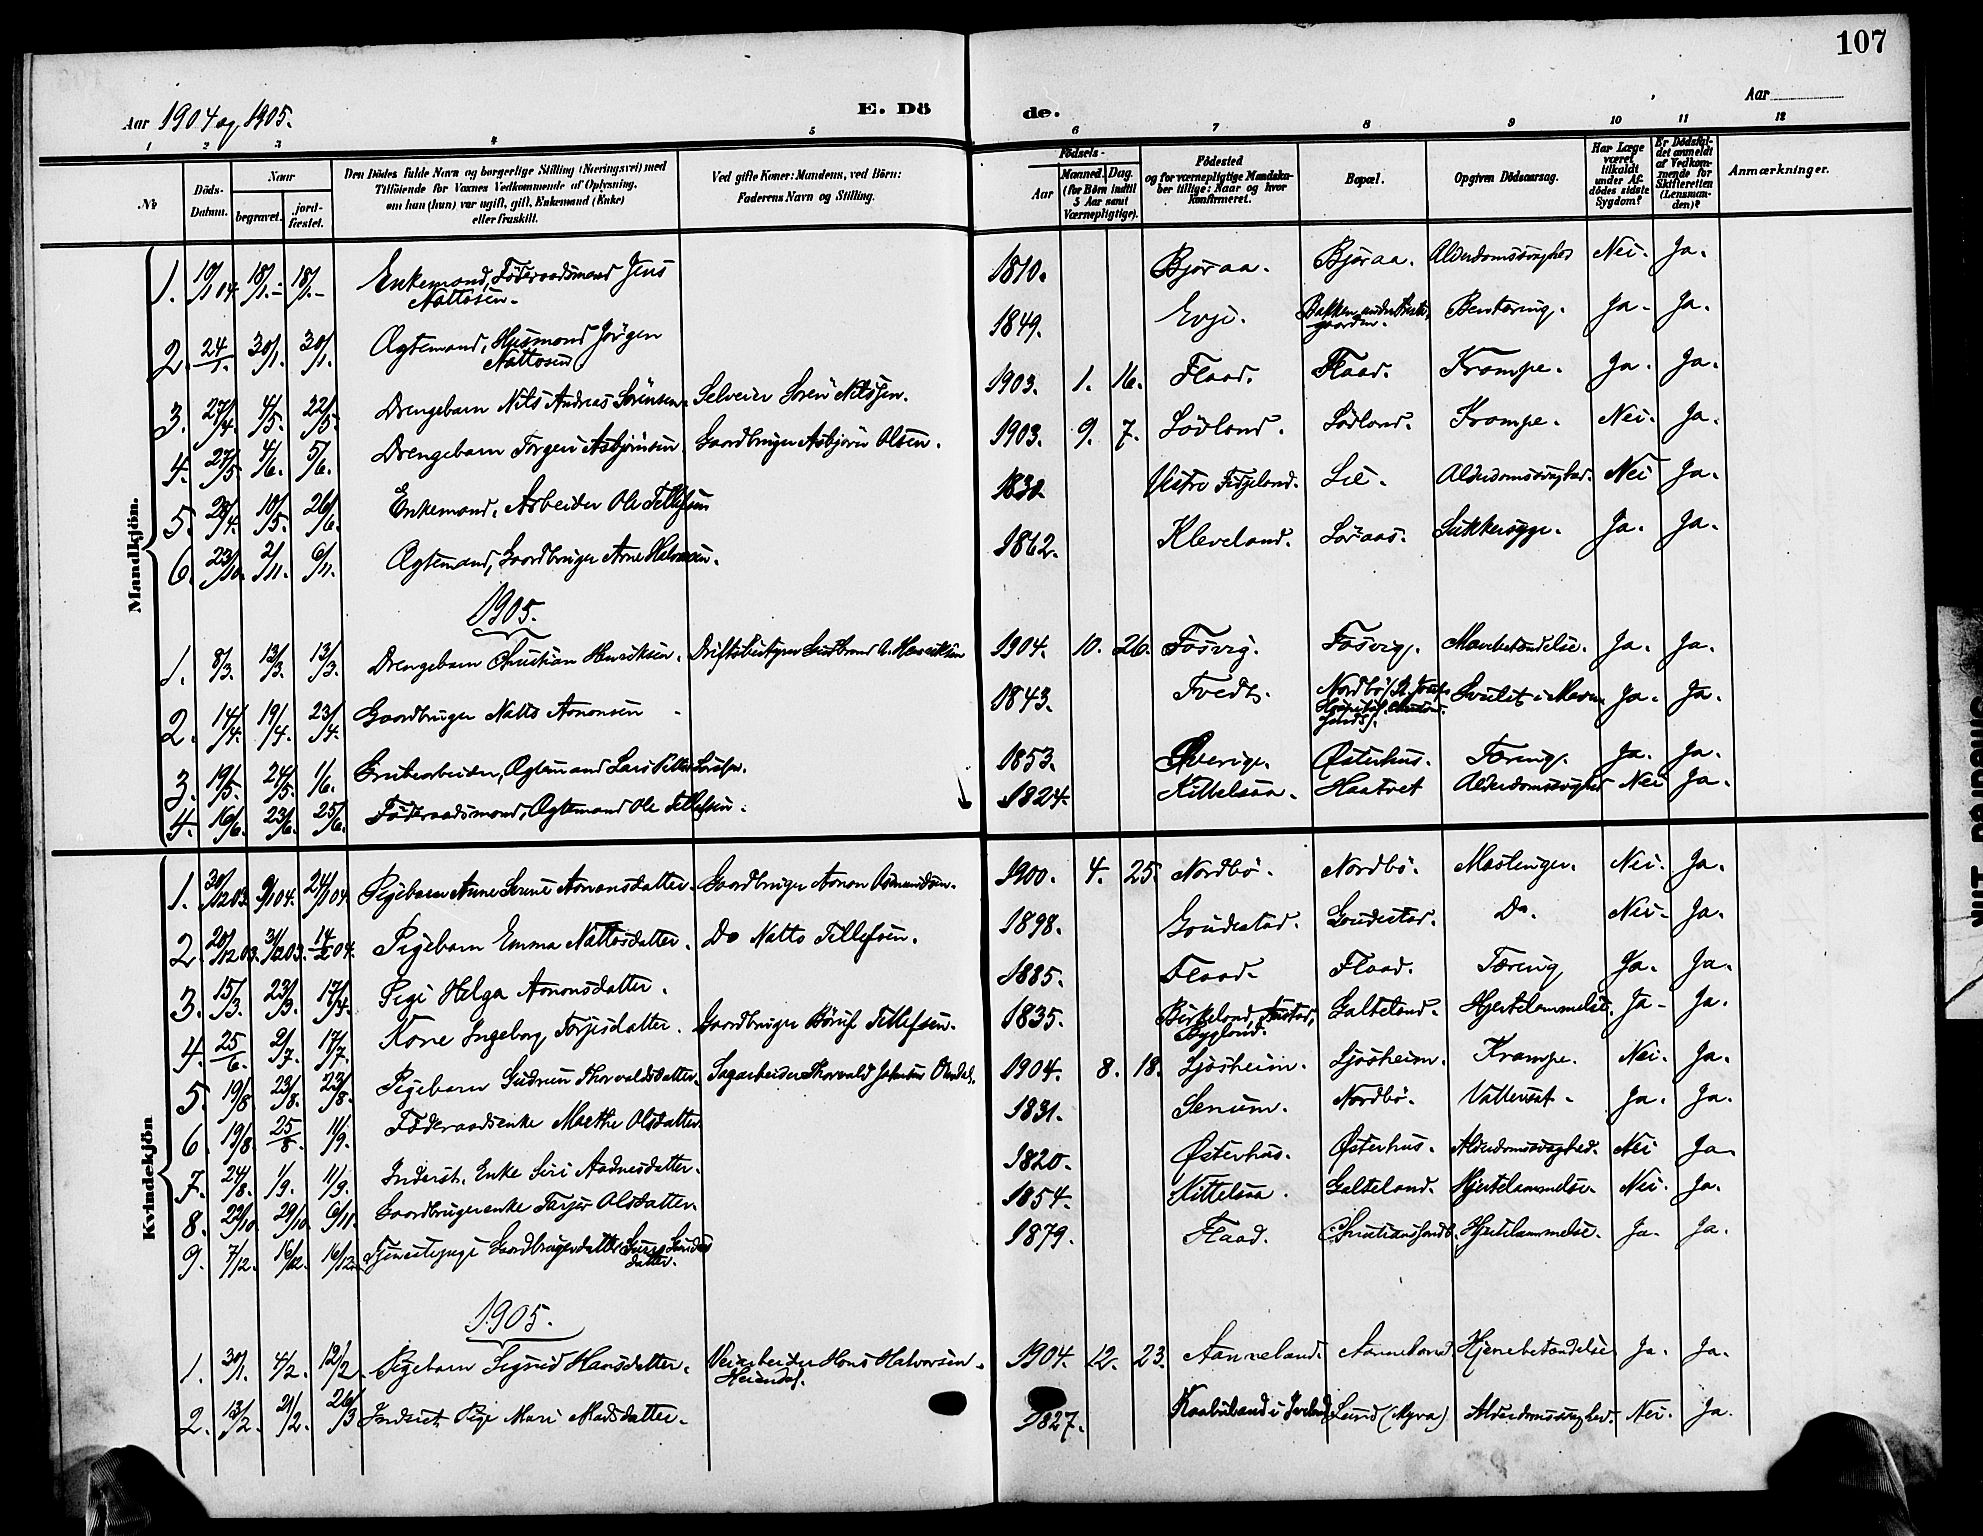 107
Aar 1904 og 1905.
E. Dö
de.
Aar
1 2 3 4 5 6 7 8 9 10 11 12
No
Döds-Datum.
Naar
begravet.
jord-fæstet.
Den Dödes fulde Navn og borgerlige Stilling (Næringsvei) med
Tilföiende for Voxnes Vedkommende af Oplysning,
om han (hun) var ugift, gift, Enkemand (Enke)
eller fraskilt.
Ved gifte Koner: Mandens, ved Börn:
Faderens Navn og Stilling.
Födsels-
Aar
Maaned. Dag.
(for Börn indtil
5 Aar samt
Værnepligtige).
Födested
og for værnepligtige Mandska-
ber tillige: Naar og hvor
konfirmeret.
Bopæl.
Opgiven Dödsaarsag.
Har Læge
været
tilkaldt
under Af-
dödes sidste
Sygdom?
Er Dödsfal-
det anmeldt
af Vedkom-
mende for
Skifteretten
(Lensman-
den)?
Anmærkninger.
Mandkjön.
1. 19/1 04. 18/1.- 18/1.- Enkemand, Föderaadsmand Jens 1810. Bjøraa. Bjøraa. Alderdomssvaghed Nei. Ja.
Nattosen.
2. 24/1. 30/1. 30/1. Ægtemand, Husmand Jörgen 1849. Evje. Bakken under Ja. Ja.
Nattosen
3. 27/4. 4/5. 22/5. Drengebarn Nils Andreas Sörensen. Selveier Sören Nilssen. 1903. 1. 16. Flaad. Flaad. Krampe. Ja. Ja.
4. 27/5. 4/6. 5/6. Drengebarn Torgeir Asbjörnsen. Gaardbruger Asbjörn Olsen. 1903. 9. 7. Lövland. Lövland. Krampe. Nei. Ja.
5. 28/4. 10/5. 26/6. Enkemand, Arbeider Ole Tellefsen 1830. Vestre Lie. Alderdomssvaghed. Nei Ja.
6. 23/10. 2/11. 6/11. Ægtemand, Gaardbruger Arne Halvorsen. 1862. Kleveland. Løraas. Sukkersyge. Ja. Ja.
1905.
1. 8/3. 13/3. 13/3. Drengebarn Christian Henriksen. Driftsbestyrer Henriksen 1904. 10. 26. Fösvig. Fösvig. Mavebetændelse. Ja. Ja.
2. 14/4. 19/4. 23/4. Gaardbruger Natto Aanonsen 1843. Tvedt. Nordbö / St. Josefs Svulst i Maven Ja. Ja.
3. 19/5. 24/5. 1/6. Grubearbeider, Ægtemand Lars Petter 1853. Sverige. Østerhus. Tæring. Ja. Ja.
4. 16/6. 23/6. 25/6. Föderaadsmand, Ægtemand Ole Tellefsen. 1824. Kittelsaa. Haatvet Alderdomssvaghed Nei Ja.
Kvindekjön
1. 30/12 03. 9/1 04. 24/1 04. Pigebarn Anne Serine Aanonsdatter. Gaardbruger Aanon Osmundsen. 1900. 4. 25. Nordbö. Nordbö. Meslinger. Nei. Ja.
2. 20/12 03. 31/12 03. 14/2 04. Pigebarn Emma Nattosdatter. Do Natto Tellefsen. 1898. Do. Nei. Ja.
3. 15/3. 23/3. 17/4. Pige Helga Aanonsdatter. 1885. Flaad. Flaad. Tæring Ja. Ja.
4. 25/6. 2/7. 17/7. Kone Ingeborg Torjusdatter. Gaardbruger Böruf Tellefsen. 1835. Birkeland, Galteland. Hjertelammelse. Ja. Ja.
Bygland.
5. 19/8. 23/8. 23/8. Pigebarn Gudrun Thorvaldsdatter. Sagarbeider Thorvald 1904. 8. 18. Ljösheim. Ljösheim. Krampe. Nei. Ja.
6. 19/8. 25/8. 11/9. Föderaadsenke Marthe Olsdatter 1831. Senum. Nordbö. Vattersot. Ja. Ja.
7. 24/8. 1/9. 11/9. Inderst. Enke Siri Aadnesdatter. 1820. Østerhus. Østerhus. Alderdomssvaghed. Nei Ja.
8. 22/10. 29/10. 6/11. Gaardbrugerenke Torjer Olsdatter. 1854. Kittelsaa. Galteland. Hjertelammelse. Nei. Ja.
9. 7/12. 16/12. 16/12. Tjenestepige Gaardbrugerdatter 1879. Flaad. Christianssand. Hjertelammelse. Ja. Ja.
datter.
1905.
1. 30/1. 4/2. 12/2. Pigebarn Sigrid Hansdatter. Veiarbeider Hans Halvorsen 1904. 12. 23. Aanneland. Aanneland. Hjernebetændelse Ja. Ja.
2. 13/2. 21/2. 26/3 Inderst. Pige Mari Madsdatter. 1827. Kaabuland i Iveland Lund (Myra) Alderdomssvaghed. Nei. Ja.